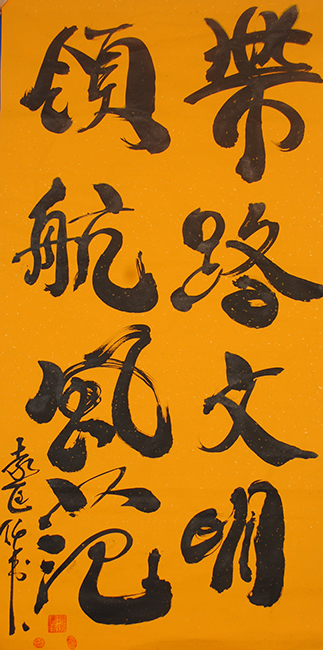 帶路文明
領航風范